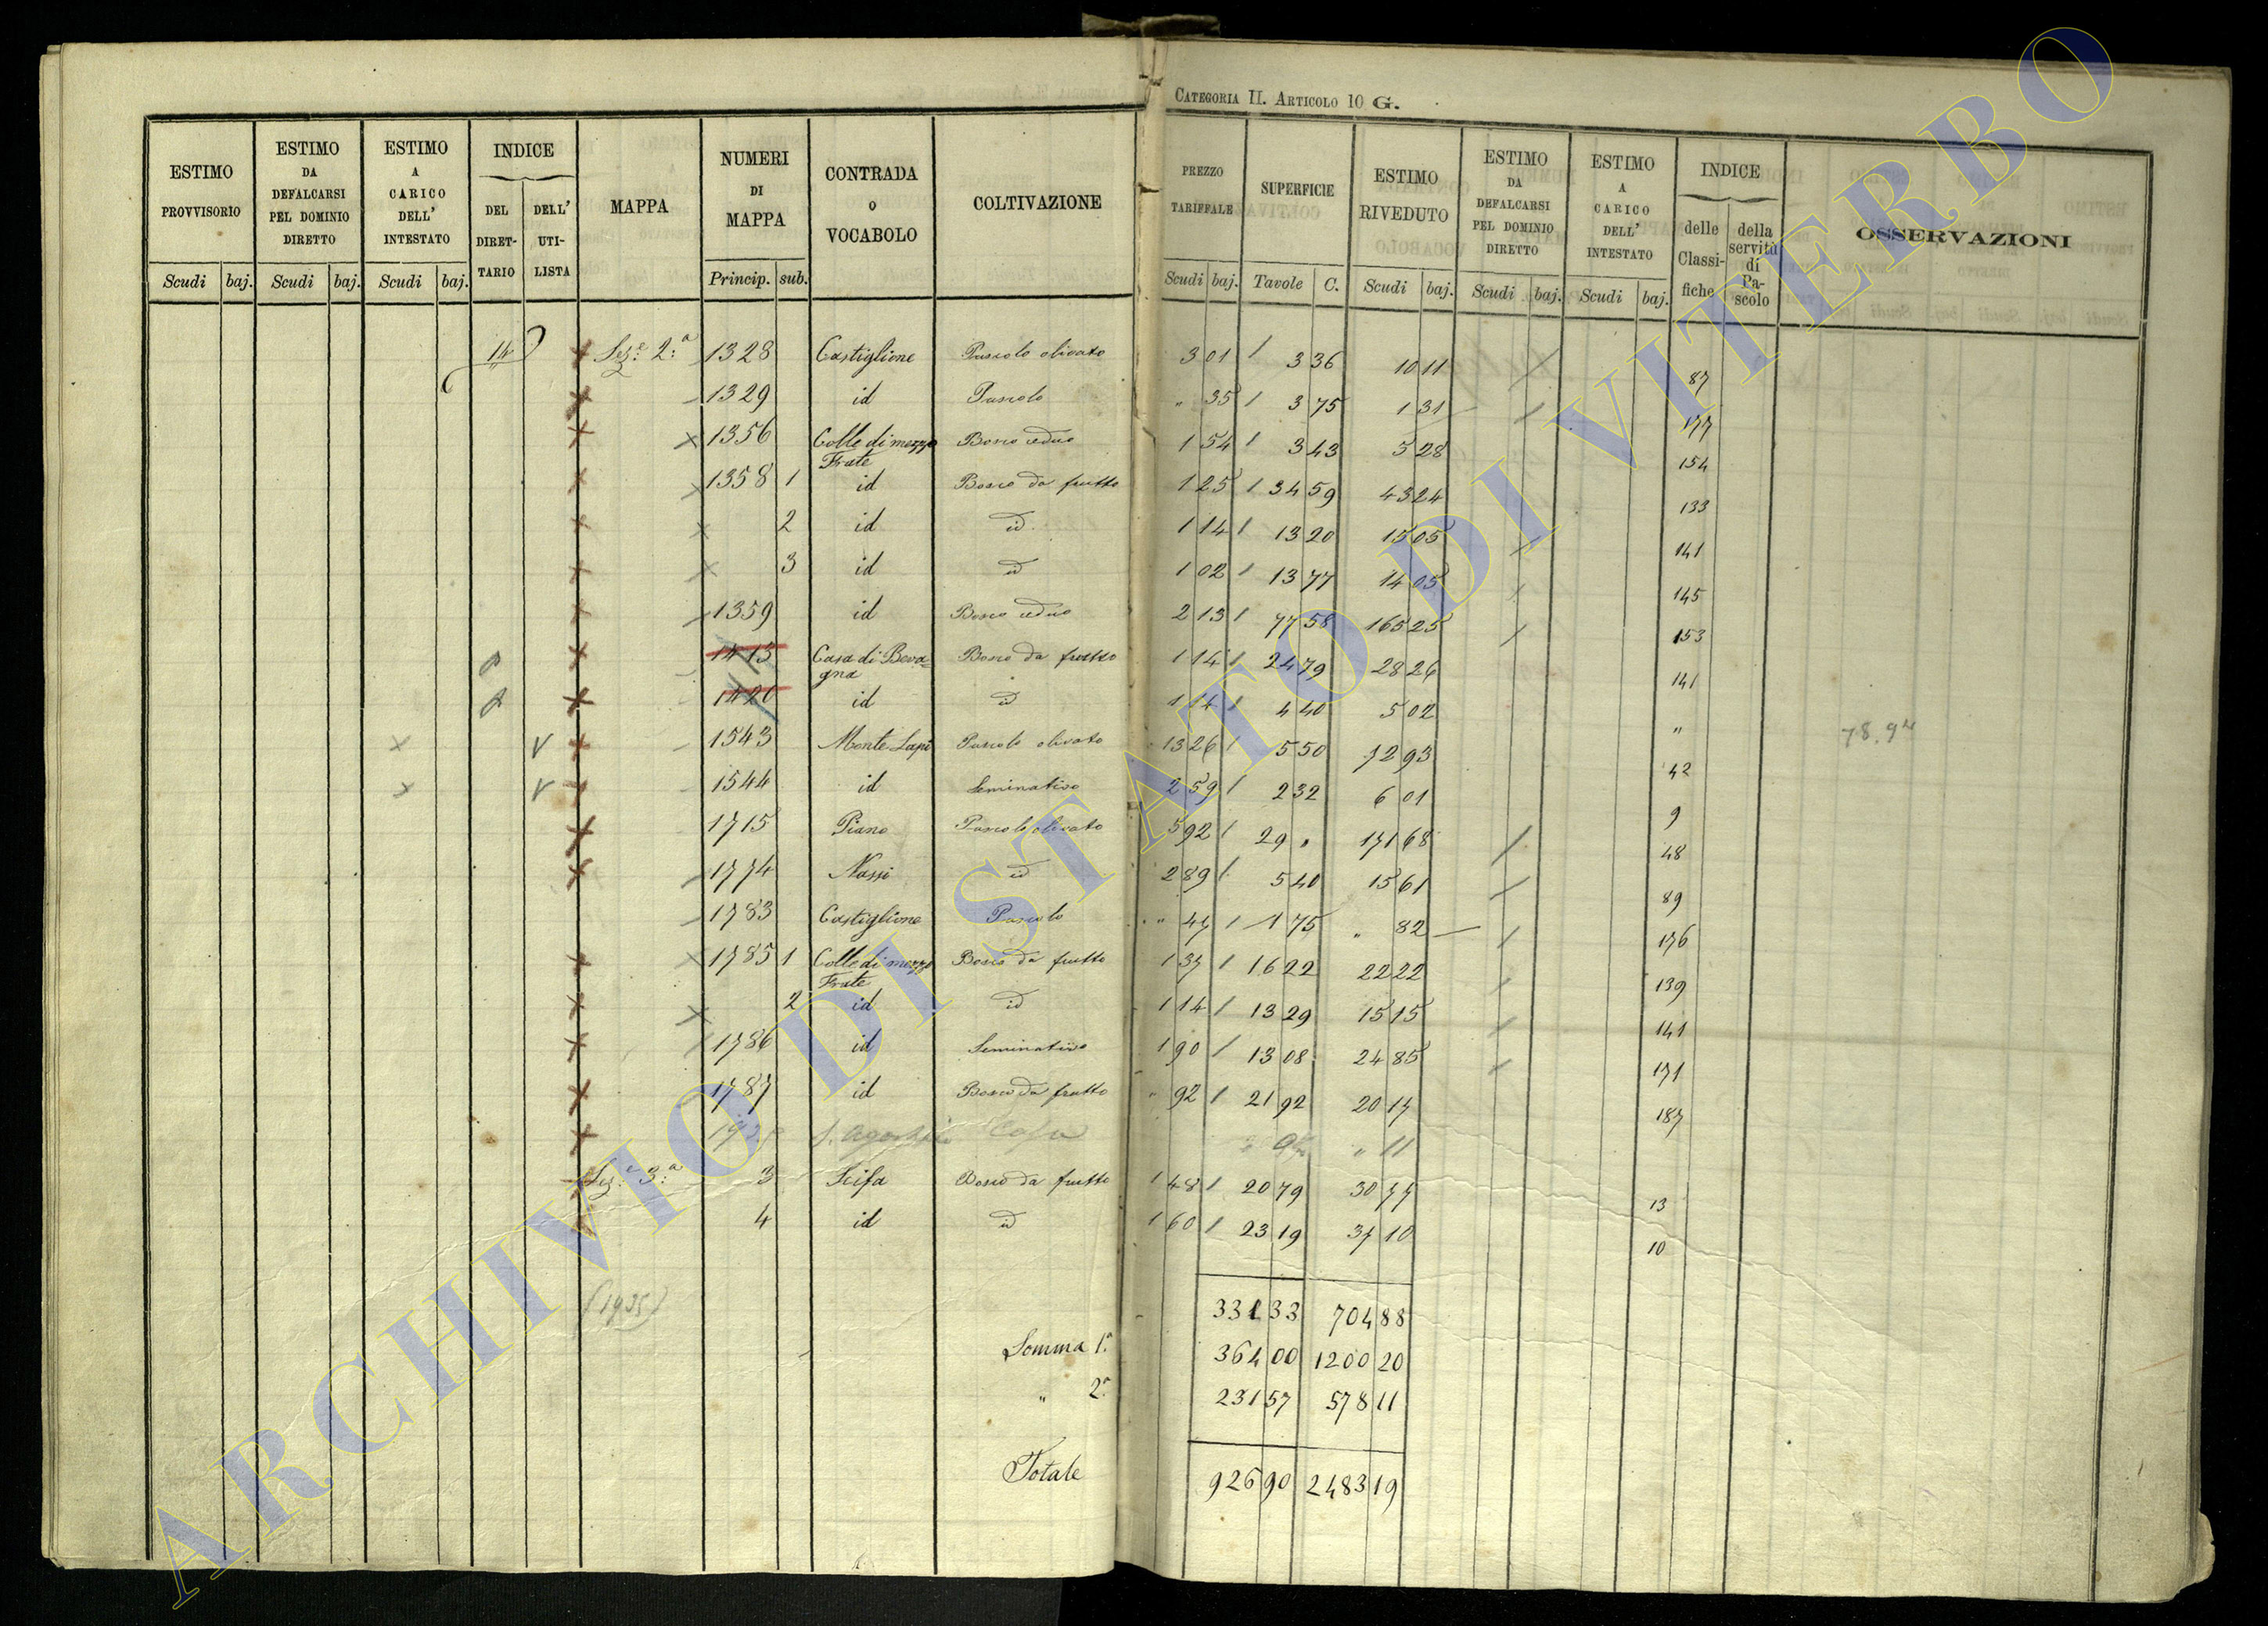 CATEGORIA II. ARTICOLO 10 G.
ESTIMO PROVVISORIO | ESTIMO DA DEFALCARSI PEL DOMINIO DIRETTO | ESTIMO A CARICO DELL' INTESTATO | INDICE | MAPPA | NUMERI DI MAPPA | CONTRADA O VOCABOLO | COLTIVAZIONE | PREZZO TARIFFALE | SUPERFICIE | ESTIMO RIVEDUTO | ESTIMO DA DEFALCARSI PEL DOMINIO DIRETTO | ESTIMO A CARICO DELL' INTESTATO | INDICE | OSSERVAZIONI
DEL DIRET-TARIO | DELL' UTI-LISTA | delle Classi-fiche | della servitù di Pa-scolo
Scudi | baj. | Scudi | baj. | Scudi | baj. | Princip. | sub. | Scudi | baj. | Tavole | C. | Scudi | baj. | Scudi | baj. | Scudi | baj.
14 | Sez.e 2.a | 1328 | Castiglione | Pascolo olivato | 3 01 | 3 36 | 10 11 | 87
1329 | id | Pascolo | " 35 | 3 75 | 1 31 | 177
1356 | Colle di mezzo Frate | Bosco ceduo | 1 54 | 3 43 | 5 28 | 154
1358 | 1 | id | Bosco da frutto | 1 25 | 34 59 | 43 24 | 133
2 | id | id | 1 14 | 13 20 | 15 05 | 141
3 | id | id | 1 02 | 13 77 | 14 05 | 145
1359 | id | Bosco ceduo | 2 13 | 77 58 | 165 25 | 153
1413 | Casa di Beva=gna | Bosco da frutto | 1 14 | 24 79 | 28 26 | 141
1420 | id | id | 1 14 | 4 40 | 5 02 | "
1543 | Monte Lapi | Pascolo olivato | 13 26 | 5 50 | 72 93 | 42 | 78.94
1544 | id | Seminativo | 2 59 | 2 32 | 6 01 | 9
1715 | Piano | Pascolo olivato | 5 92 | 29 " | 171 68 | 48
1774 | Nassi | id | 2 89 | 5 40 | 15 61 | 89
1783 | Castiglione | Pascolo | " 47 | 1 75 | " 82 | 176
1785 | 1 | Colle di mezzo Frate | Bosco da frutto | 1 37 | 16 22 | 22 22 | 139
2 | id | id | 1 14 | 13 29 | 15 15 | 141
1786 | id | Seminativo | 1 90 | 13 08 | 24 85 | 171
1787 | id | Bosco da frutto | " 92 | 21 92 | 20 17 | 187
S. Agostino | Casa | " 11
Sez.e 3.a | 3 | Scifa | Bosco da frutto | 1 48 | 20 79 | 30 77 | 13
4 | id | id | 1 60 | 23 19 | 37 10 | 10
(1935) | 331 33 | 704 88
Somma 1.a | 364 00 | 1200 20
" 2.a | 231 57 | 578 11
Totale | 926 90 | 2483 19
ARCHIVIO DI STATO DI VITERBO